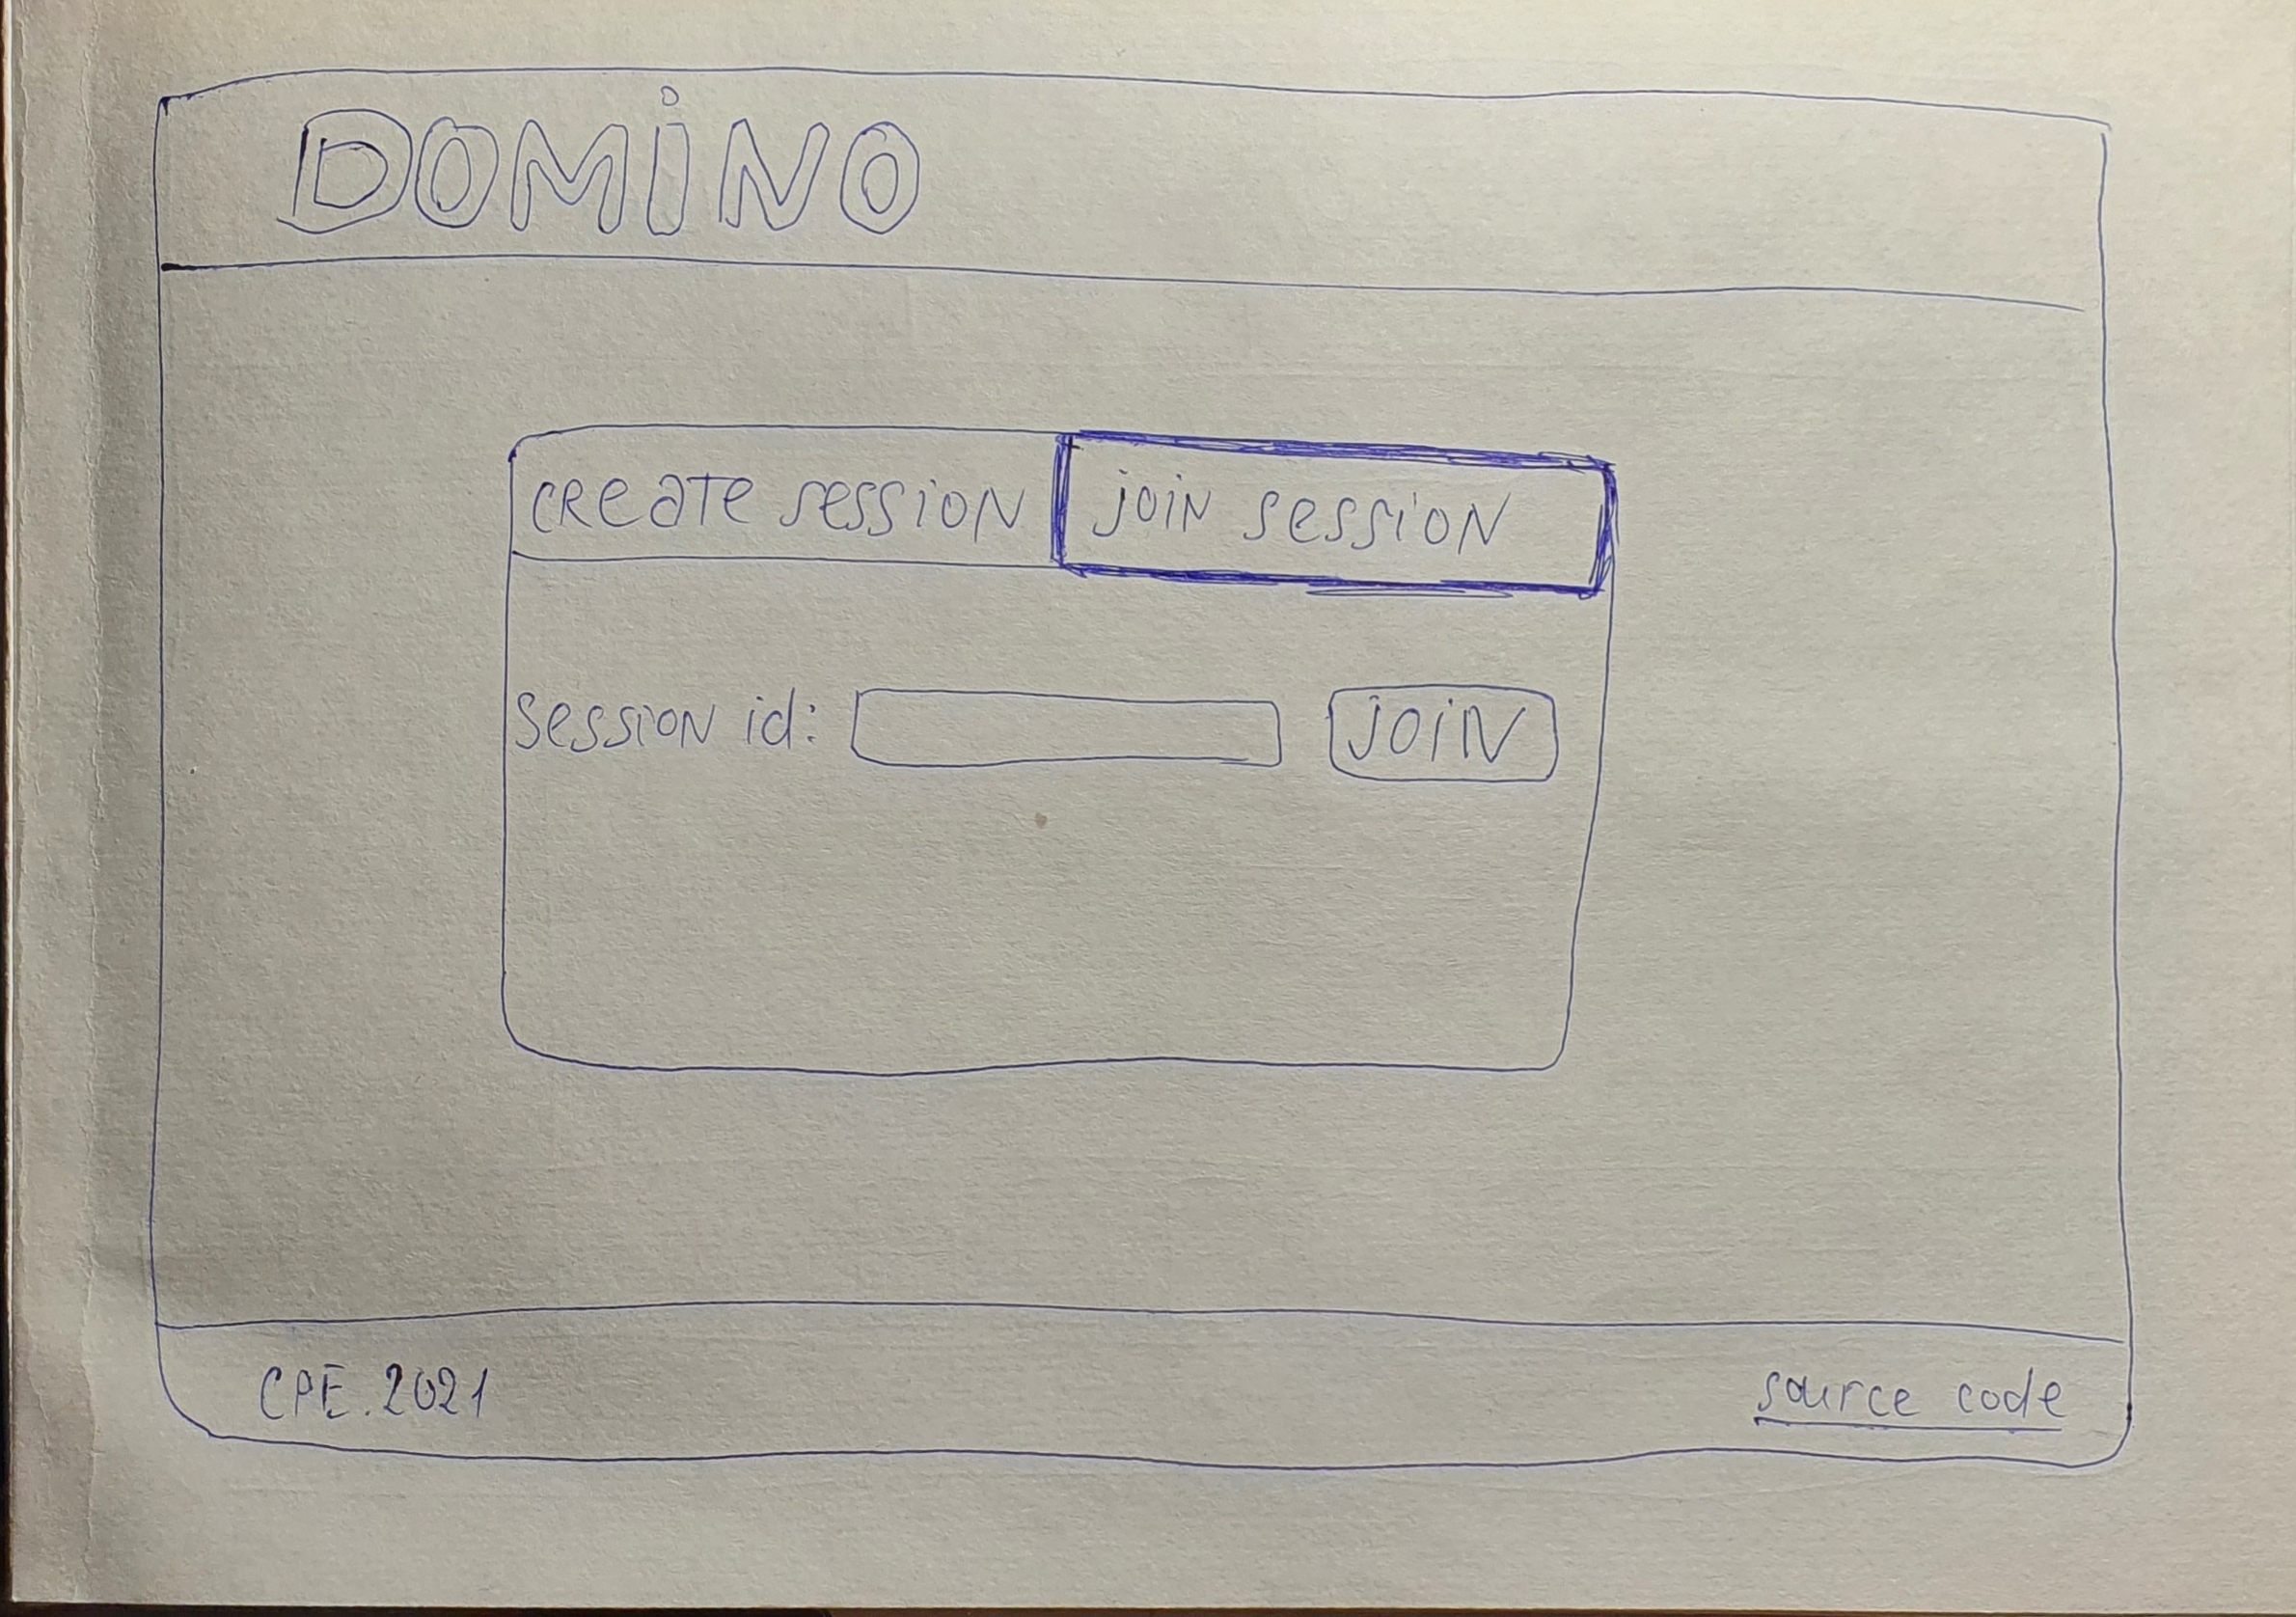 DOMINO
CREATE SESSION
JOIN SESSION
SESSION id:
JOIN
CPE.2021
source code